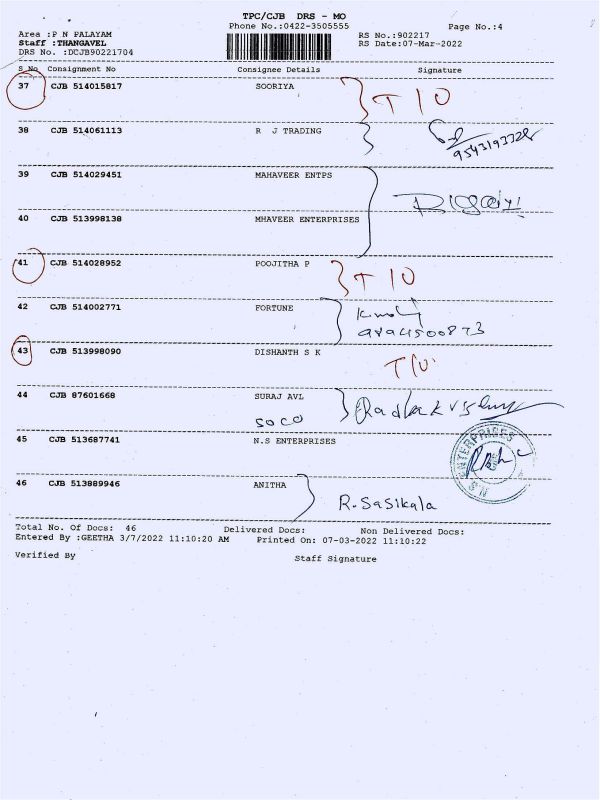 TPC/CJB DRS - MO
Phone No.:0422-3505555 Page No.:4
Area :P N PALAYAM RS No.:902217
Staff :THANGAVEL RS Date:07-Mar-2022
DRS No. :DCJB90221704
S_No Consignment No Consignee Details Signature
37 CJB 514015817 SOORIYA T/O
38 CJB 514061113 R J TRADING
9543193328
39 CJB 514029451 MAHAVEER ENTPS
40 CJB 513998138 MHAVEER ENTERPRISES
41 CJB 514028952 POOJITHA P T/O
42 CJB 514002771 FORTUNE
9894500873
43 CJB 513998090 DISHANTH S K T/O
44 CJB 87601668 SURAJ AVL
SOCO
45 CJB 513687741 N.S ENTERPRISES
ENTERPRISES
46 CJB 513889946 ANITHA
R.Sasikala
Total No. Of Docs: 46 Delivered Docs: Non Delivered Docs:
Entered By :GEETHA 3/7/2022 11:10:20 AM Printed On: 07-03-2022 11:10:22
Verified By Staff Signature